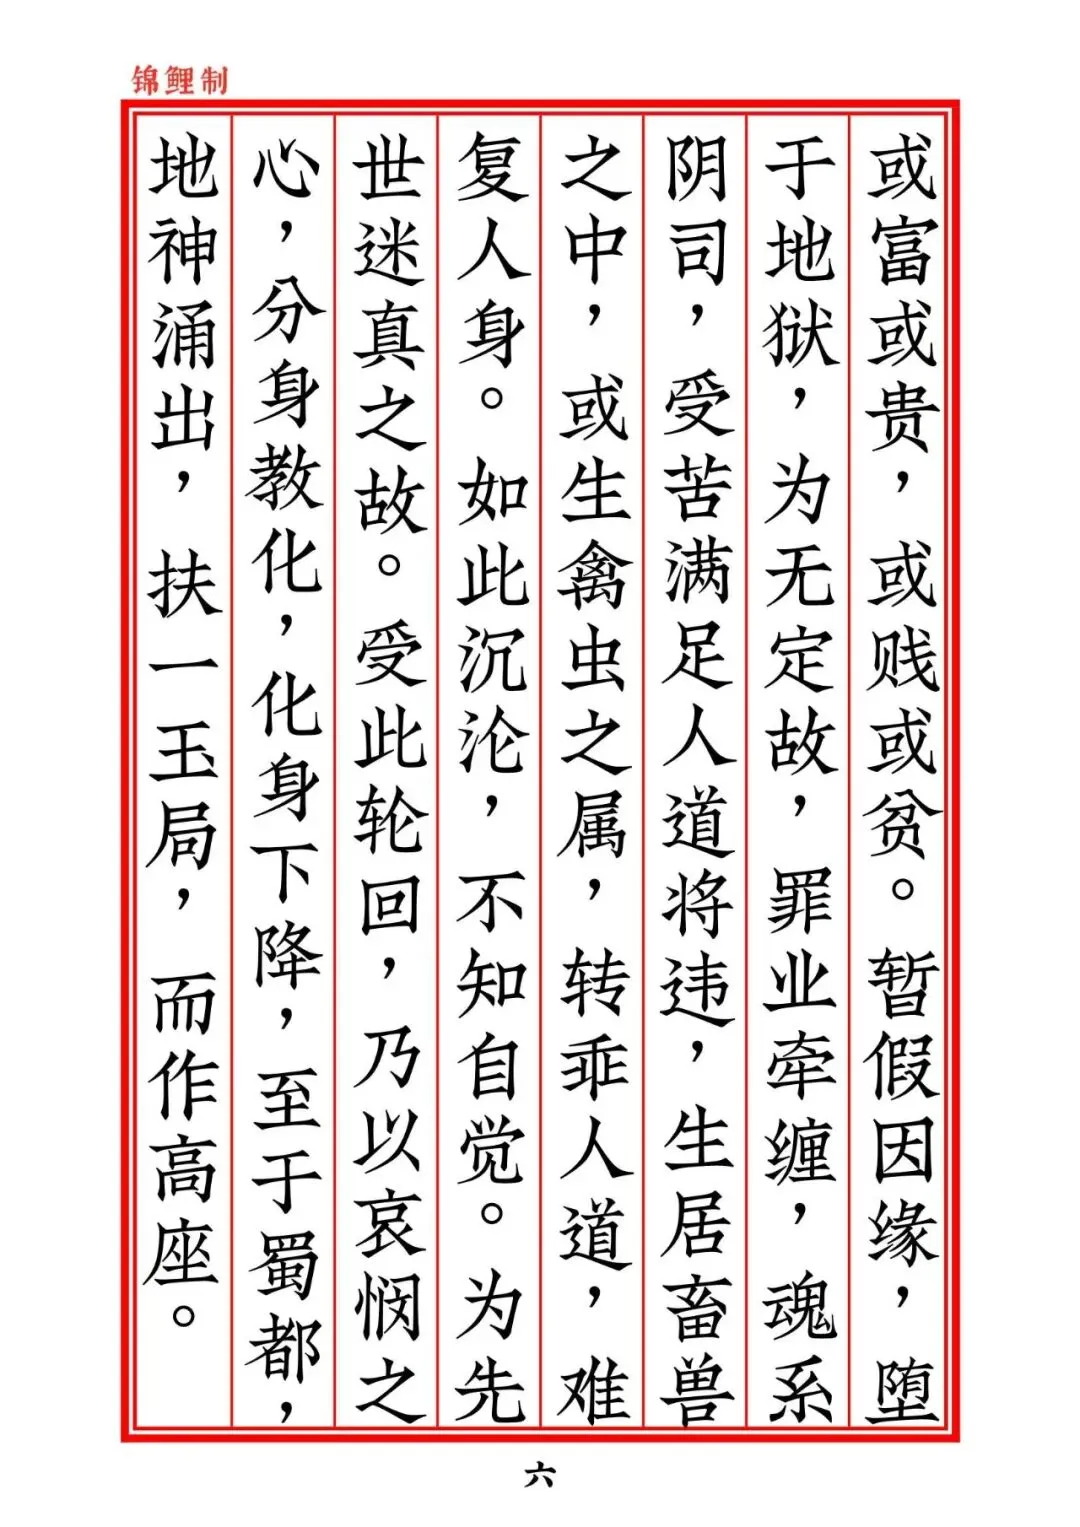 锦鲤制
或富或贵，或贱或贫。暂假因缘，堕
于地狱，为无定故，罪业牵缠，魂系
阴司，受苦满足人道将违，生居畜兽
之中，或生禽虫之属，转乖人道，难
复人身。如此沉沦，不知自觉。为先
世迷真之故。受此轮回，乃以哀悯之
心，分身教化，化身下降，至于蜀都，
地神涌出，扶一玉局，而作高座。
六